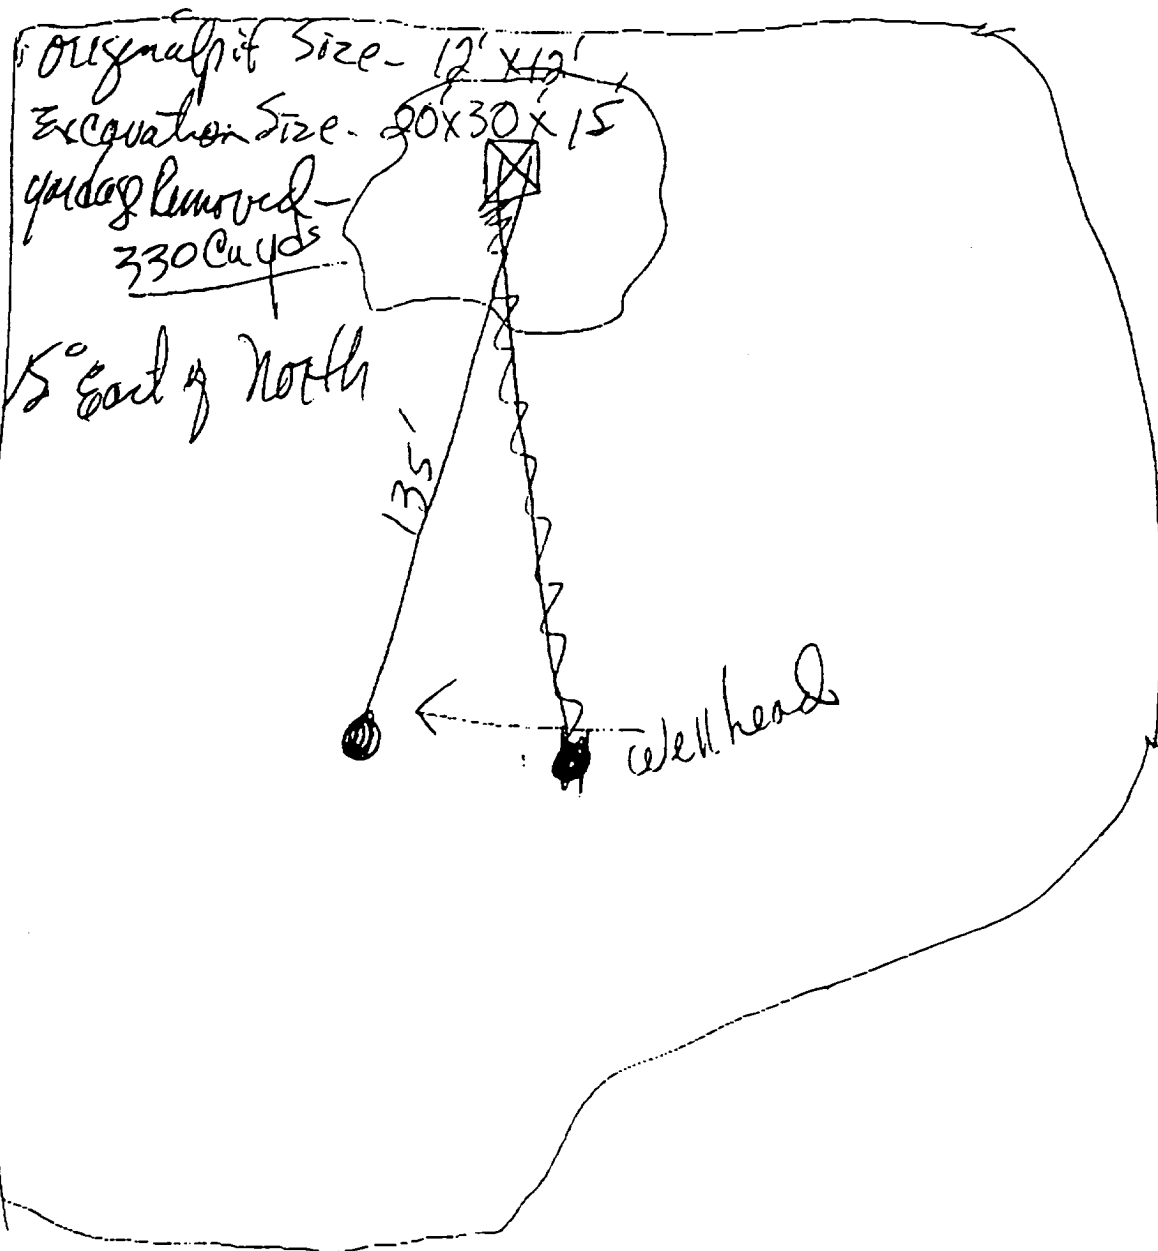 Original pit Size - 12' x 12'
Excavation Size - 20' x 30' x 15'
yardage Removed -
330 Cu yds
15° East of North
135'
Wellhead